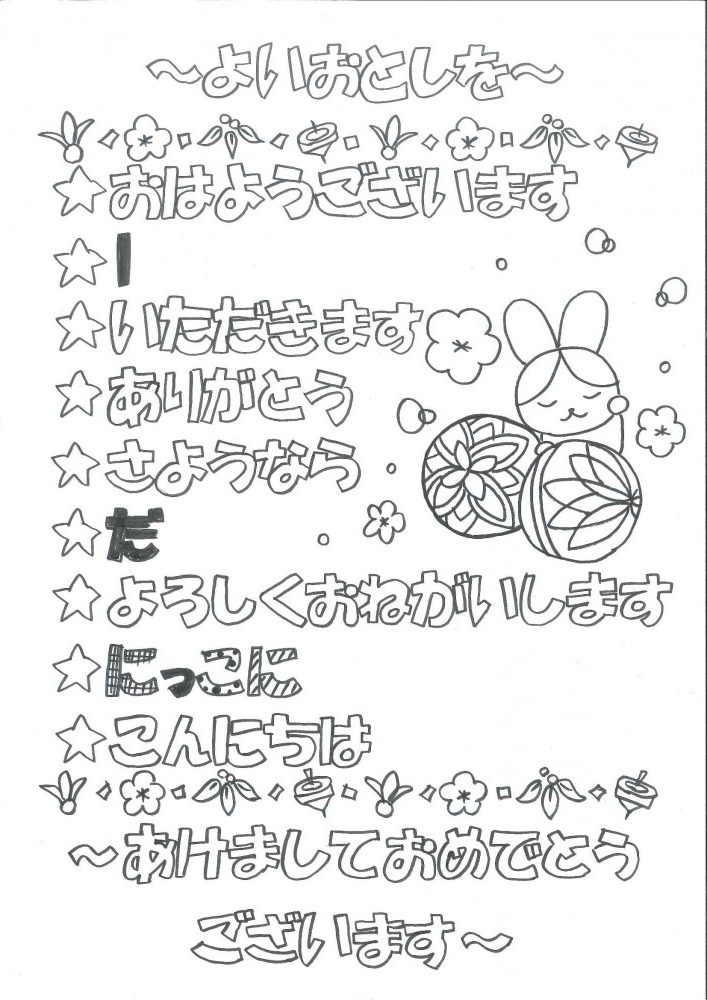 ～よいおとしを～
☆おはようございます
☆1
☆いただきます
☆ありがとう
☆さようなら
☆だ
☆よろしくおねがいします
☆にっこに
☆こんにちは
～あけましておめでとう
ございます～